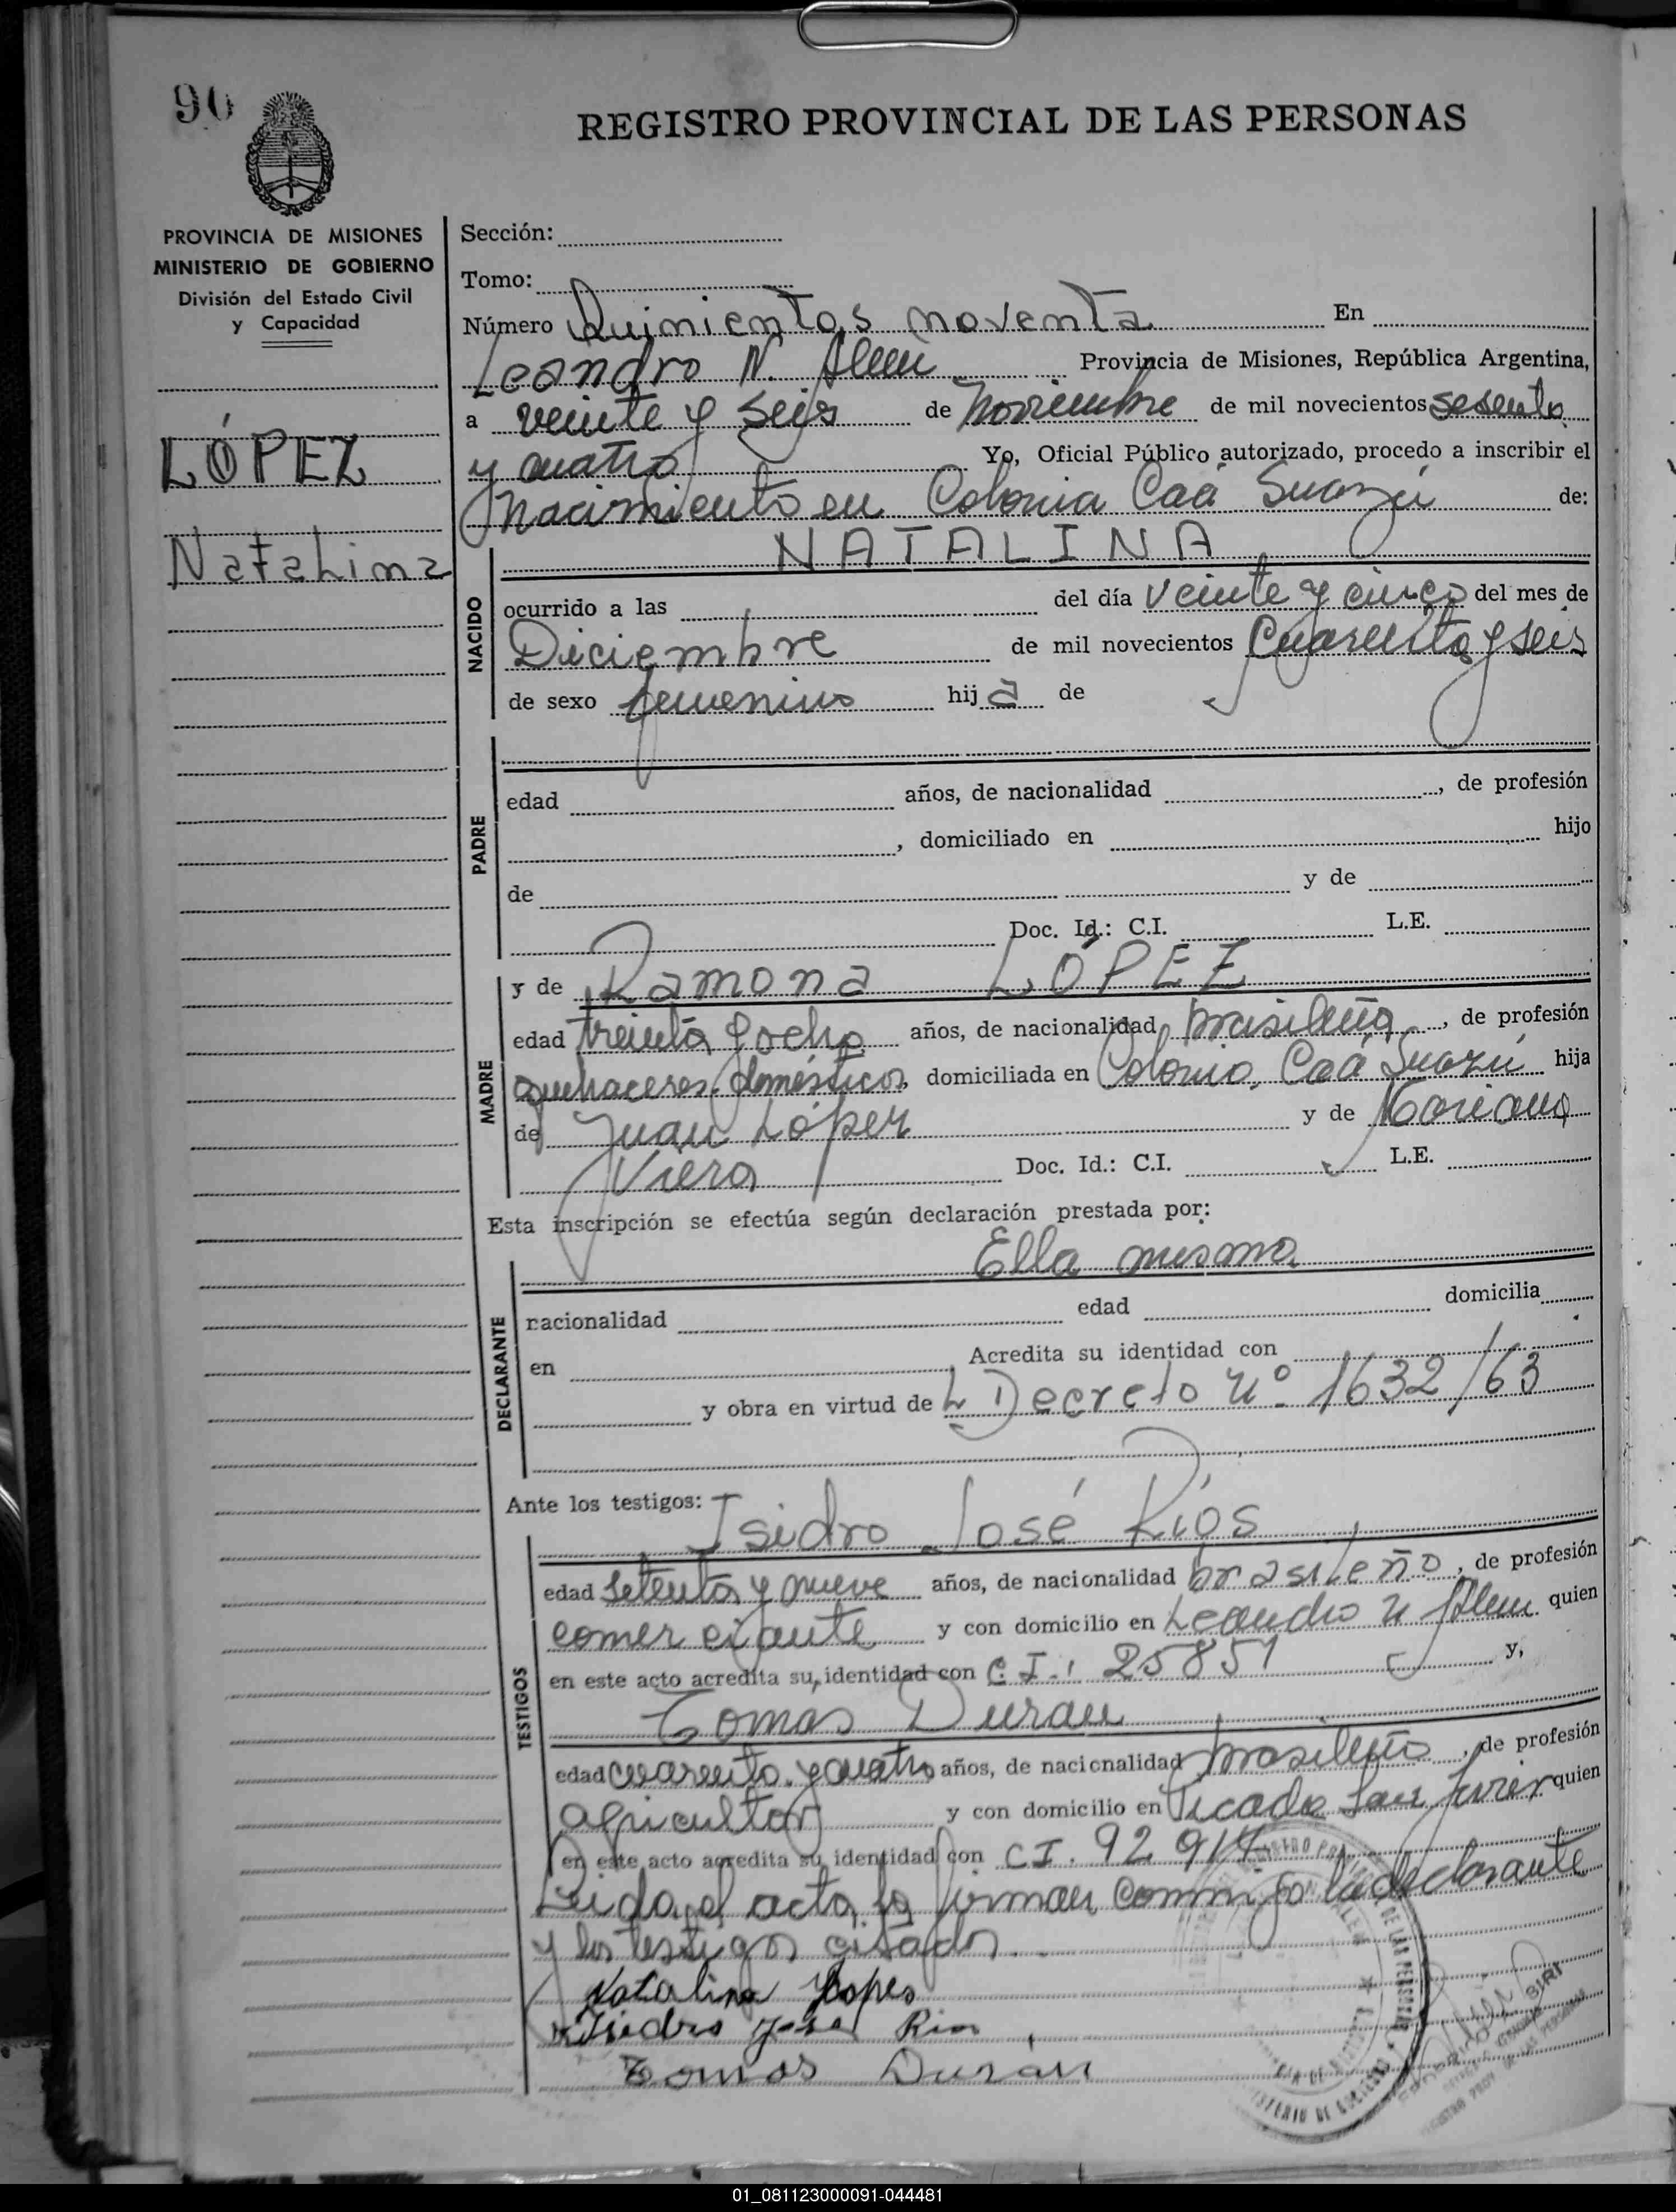 90
REGISTRO PROVINCIAL DE LAS PERSONAS
PROVINCIA DE MISIONES
MINISTERIO DE GOBIERNO
División del Estado Civil
y Capacidad
LÓPEZ
Natalina
Sección:
Tomo:
Número Quinientos noventa En
Leandro N. Alem Provincia de Misiones, República Argentina,
a veinte y seis de Noviembre de mil novecientos sesenta
y cuatro Yo, Oficial Público autorizado, procedo a inscribir el
Nacimiento en Colonia Caá de:
NATALINA
NACIDO
ocurrido a las del día veinte y cinco del mes de
Diciembre de mil novecientos Cuarenta y seis
de sexo femenino hija de
PADRE
edad años, de nacionalidad , de profesión
, domiciliado en hijo
de y de
Doc. Id.: C.I. L.E.
MADRE
y de Ramona LÓPEZ
edad treinta y ocho años, de nacionalidad brasileña, de profesión
quehaceres domésticos, domiciliada en Colonia Caá hija
de Juan López y de Mariana
Viera Doc. Id.: C.I. L.E.
Esta inscripción se efectúa según declaración prestada por:
Ella misma
DECLARANTE
nacionalidad edad domicilia
en Acredita su identidad con
y obra en virtud de L Decreto Nº 1632/63
Ante los testigos: Isidro José Ríos
TESTIGOS
edad setenta y nueve años, de nacionalidad brasileño, de profesión
comerciante y con domicilio en Leandro N Alem quien
en este acto acredita su identidad con C.I.: 25851 y,
Tomas Duran
edad cuarenta y cuatro años, de nacionalidad brasileño, de profesión
agricultor y con domicilio en Picada San Javier quien
en este acto acredita su identidad con CI. 92914
Leida el acta, la firman conmigo la declarante
y los testigos citados.
Natalina Lopes
Isidro Jose Rios
Tomas Durán
01_081123000091-044481